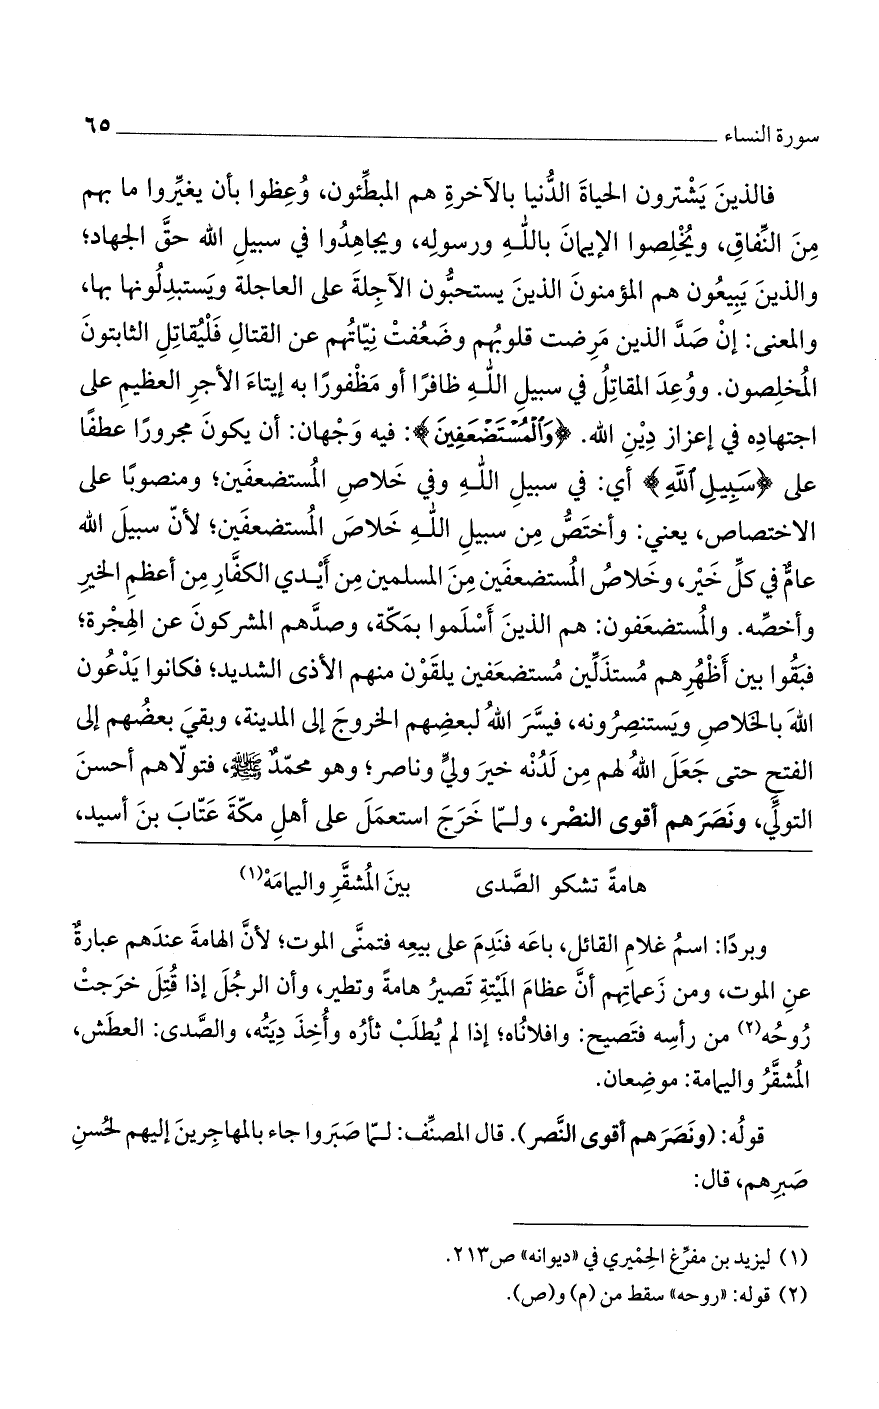 سورة النساء ٦٥
فالذينَ يَشْترون الحياةَ الدُّنيا بالآخرةِ هم المبطِّئون، وُعِظوا بأن يغيِّروا ما بهم
مِنَ النِّفاقِ، ويُخْلِصوا الإيمانَ باللـهِ ورسولِه، ويجاهِدُوا في سبيلِ الله حقَّ الجهاد؛
والذينَ يَبِيعُون هم المؤمنونَ الذينَ يستحبُّون الآجِلةَ على العاجلة ويَستبدِلُونها بها،
والمعنى: إنْ صَدَّ الذين مَرِضت قلوبُهم وضَعُفتْ نِيّاتُهم عن القتالِ فَلْيُقاتِلِ الثابتونَ
المُخلِصون. ووُعِدَ المقاتِلُ في سبيلِ اللـهِ ظافرًا أو مَظْفورًا به إيتاءَ الأجرِ العظيمِ على
اجتهادِه في إعزاز دِيْنِ الله. ﴿وَٱلْمُسْتَضْعَفِينَ﴾: فيه وَجْهان: أن يكونَ مجرورًا عطفًا
على ﴿سَبِيلِ ٱللَّهِ﴾ أي: في سبيلِ اللـهِ وفي خَلاصِ المُستضعفَين؛ ومنصوبًا على
الاختصاص، يعني: وأختَصُّ مِن سبيلِ اللـهِ خَلاصَ المُستضعفَين؛ لأنّ سبيلَ الله
عامٌّ في كلِّ خَيْر، وخَلاصُ المُستضعفَين مِنَ المسلمين مِن أَيْـدي الكفَّارِ مِن أعظمِ الخيرِ
وأخصِّه. والمُستضعَفون: هم الذينَ أَسْلَموا بمَكّة، وصدَّهم المشركونَ عن الهِجْرة؛
فبَقُوا بين أَظْهُرِهم مُستذَلِّين مُستضعَفين يلقَوْن منهم الأذى الشديد؛ فكانوا يَدْعُون
اللهَ بالخَلاصِ ويَستنصِرُونه، فيسَّرَ اللهُ لبعضِهم الخروجَ إلى المدينة، وبقيَ بعضُهم إلى
الفتح حتى جَعَلَ اللهُ لهم مِن لَدُنْه خيرَ وليٍّ وناصر؛ وهو محمّدٌ ﷺ، فتولّاهم أحسنَ
التولِّي، ونَصَرَهم أقوى النصْر، ولـمّا خَرَجَ استعمَلَ على أهلِ مكّةَ عَتّابَ بنَ أسيد،
هامةً تشكو الصَّدى بينَ المُشقَّرِ واليمامَهْ(١)
وبردًا: اسمُ غلامِ القائل، باعَه فنَدِمَ على بيعِه فتمنَّى الموت؛ لأنَّ الهامةَ عندَهم عبارةٌ
عنِ الموت، ومن زَعماتِهم أنَّ عظامَ المَيْتةِ تَصيرُ هامةً وتطير، وأن الرجُلَ إذا قُتِلَ خرَجتْ
رُوحُه(٢) من رأسِه فتَصيح: وافلانُاه؛ إذا لم يُطلَبْ ثأرُه وأُخِذَ دِيَتُه، والصَّدى: العطَش،
المُشقَّرُ واليمامة: موضِعان.
قولُه: (ونَصَرَهم أقوى النَّصر). قال المصنِّف: لـمّا صَبَروا جاء بالمهاجِرينَ إليهم لحُسنِ
صَبرِهم، قال:
(١) ليزيد بن مفرِّغ الحِمْيري في «ديوانه» ص٢١٣.
(٢) قوله: «روحه» سقط من (م) و(ص).